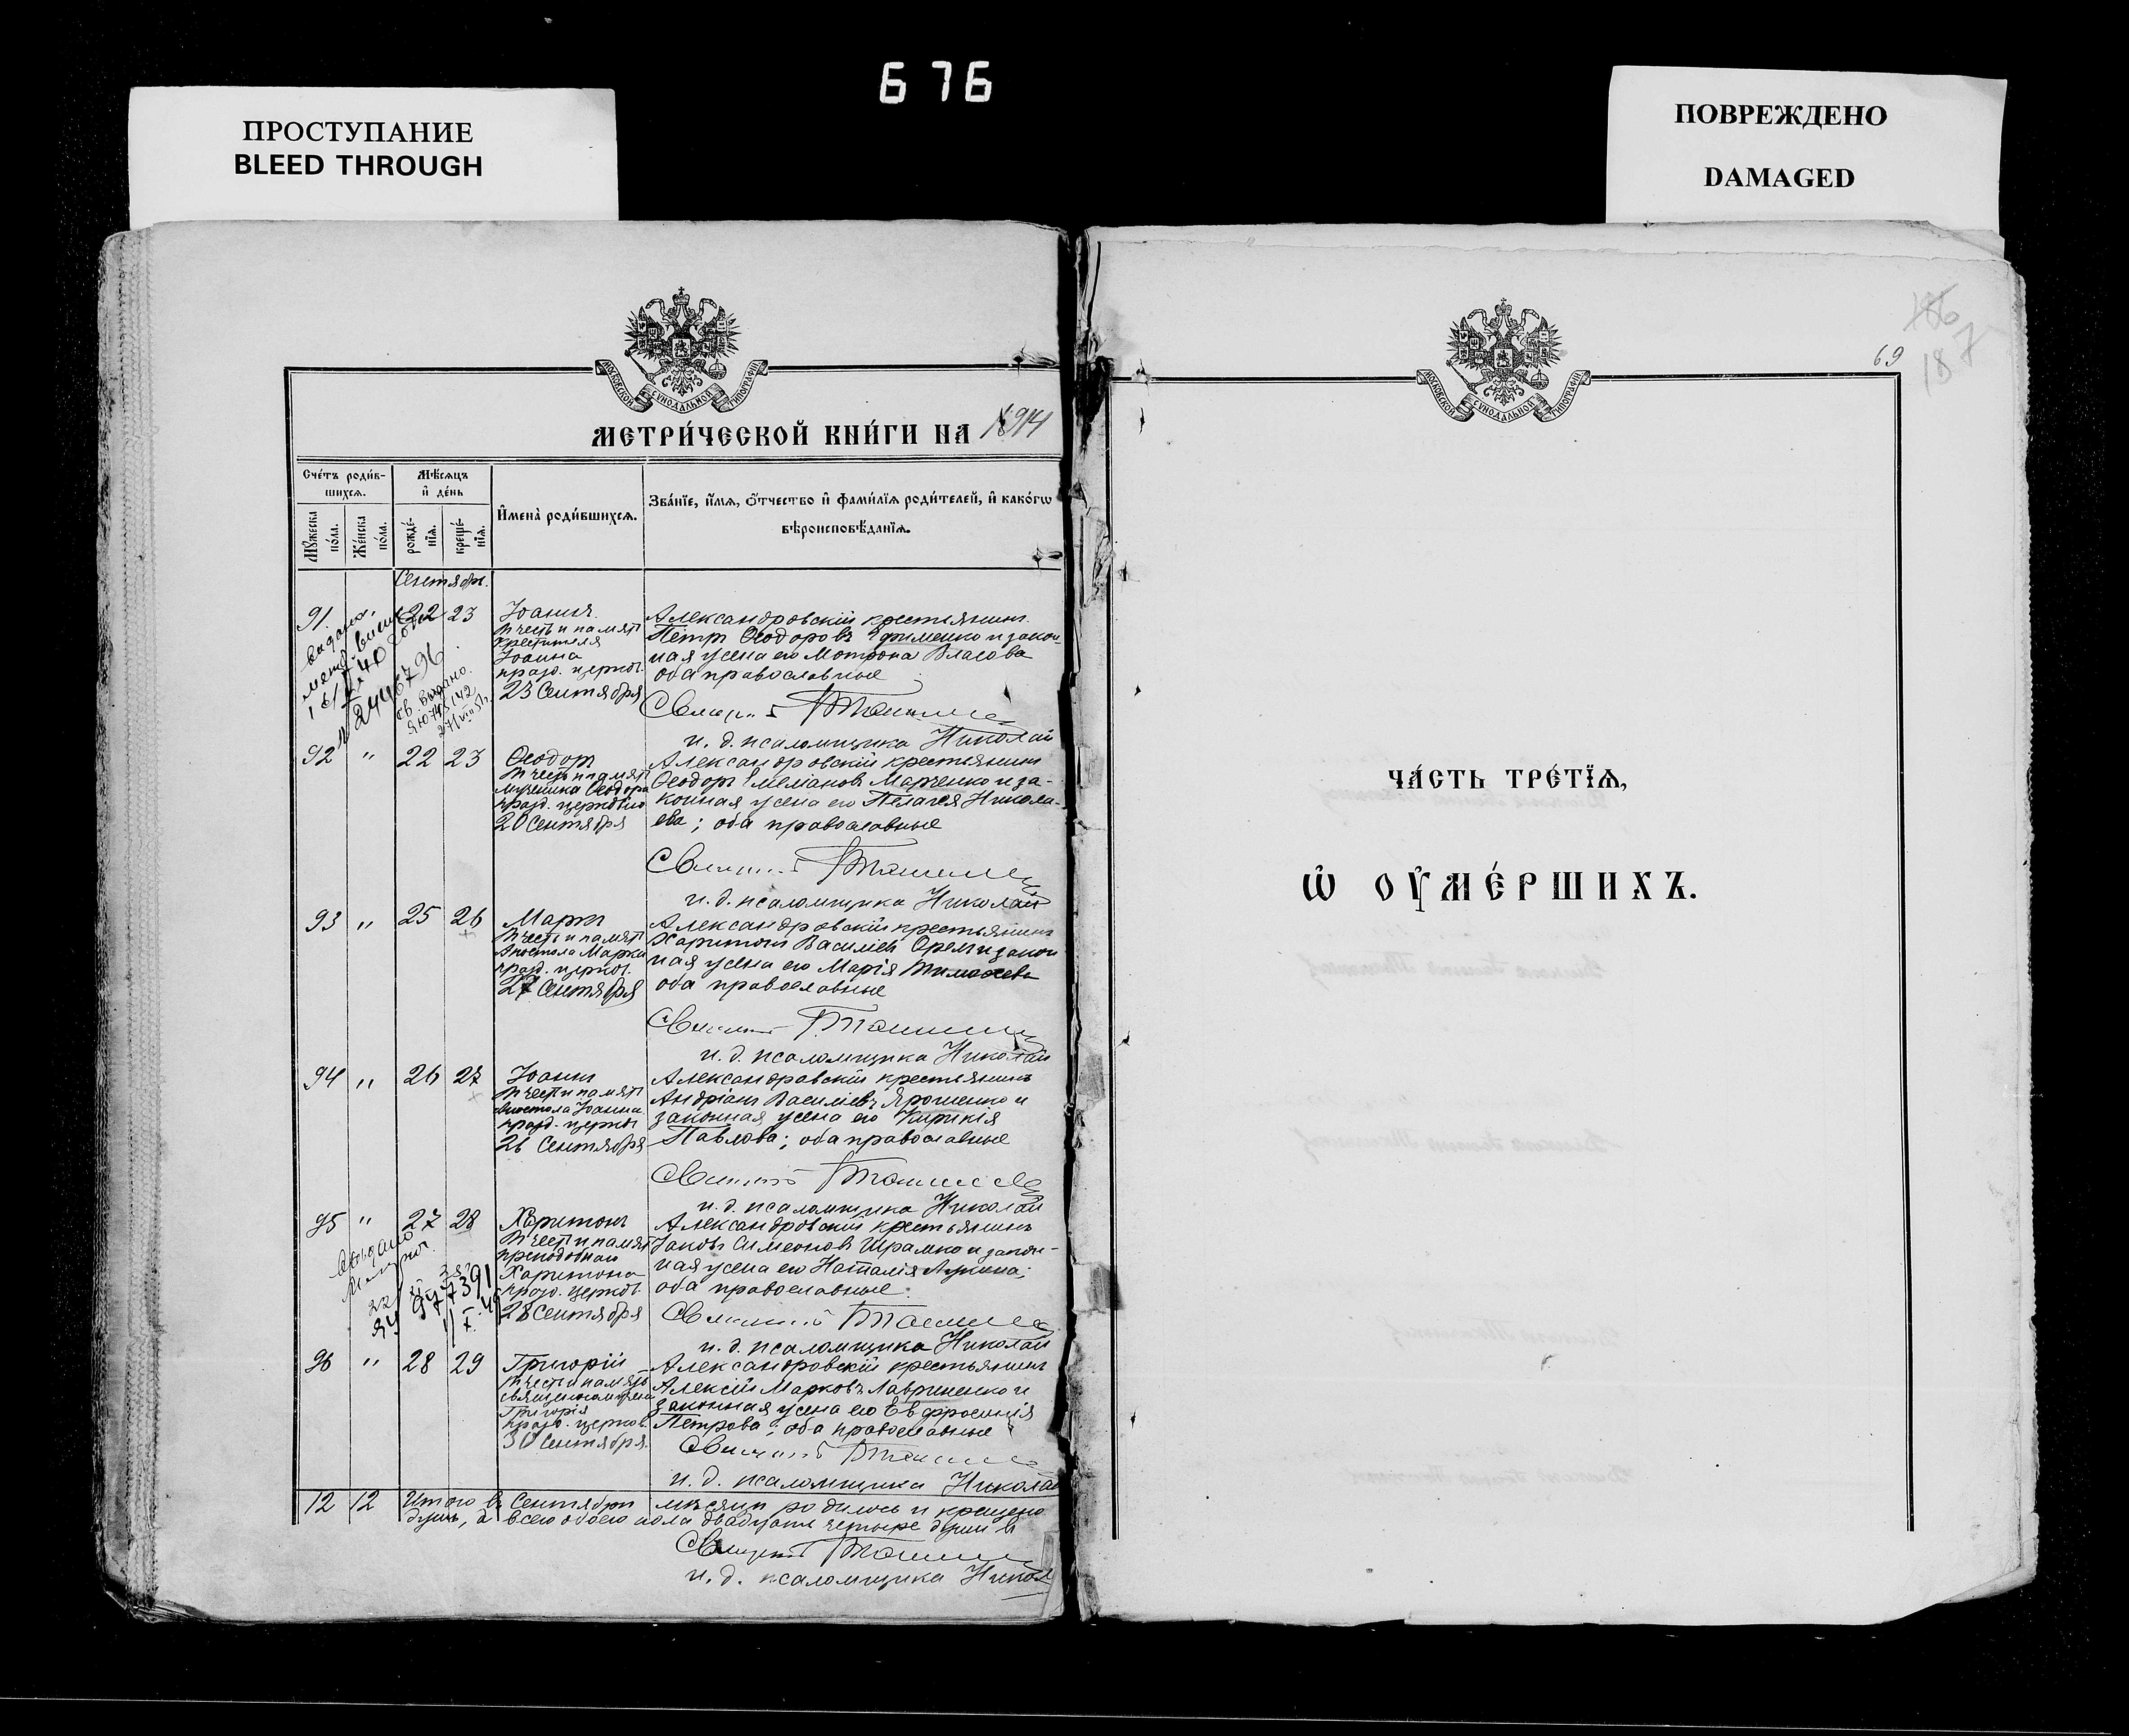 676
ПРОСТУПАНИЕ
BLEED THROUGH
ПОВРЕЖДЕНО
DAMAGED
МОСКОВСКОЙ СѴНОДАЛЬНОЙ ТИПОГРАФІИ
МЕТРИ́ЧЕСКОЙ КНИ́ГИ НА 1914
Сче́тъ роди́в-
шихсѧ.
Мѣ́сѧцъ
и҆ де́нь
И҆мена̀ роди́вшихсѧ.
Зва́нїе, и҆́мѧ, ѻ҆́тчество и҆ фами́лїѧ роди́телей, и҆ како́гѡ
вѣроисповѣ́данїѧ.
Мꙋ́жеска по́ла.
Же́нска по́ла.
рожде́-
нїѧ.
креще́-
нїѧ.
Сентябрь.
91. 22 23 Іоаннъ
въ честь и память
Крестителя
Іоанна
празд. церков.
23 Сентября
Александровскій крестьянинъ
Петръ Ѳеодоровъ Ефименко и закон-
ная жена его Матрона Власова
оба православные
и. д. псаломщика Николай
92 " 22 23 Ѳеодоръ
въ честь и память
мученика Ѳеодора
празд. церковью
20 Сентября
Александровскій крестьянинъ
Ѳеодоръ Емеліановъ Марченко и за-
конная жена его Пелагея Никола-
ева; оба православные
и. д. псаломщика Николай
93 " 25 26 Маркъ
въ честь и память
Апостола Марка
празд. церков.
27 Сентября
Александровскій крестьянинъ
Харитонъ Василіевъ и закон
ная жена его Марія Тимоѳеева
оба православные
и. д. псаломщика Николай
94 " 26 27 Іоаннъ
въ честь и память
Апостола Іоанна
празд. церков
26 Сентября
Александровскій крестьянинъ
Андріанъ Василіевъ Ярошенко и
законная жена его Кирикія
Павлова; оба православные
и. д. псаломщика Николай
95 " 27 28 Харитонъ
въ честь и память
преподобнаго
Харитона
празд. церков.
28 Сентября
Александровскій крестьянинъ
Іаковъ Симеоновъ Шрамко и закон-
ная жена его Наталія Лукина;
оба православные.
и. д. псаломщика Николай
96 " 28 29 Григорій
въ честь и память
священномученика
Григорія
празд. церков.
30 Сентября.
Александровскій крестьянинъ
Алексій Марковъ Лавриненко и
законная жена его Евфросинія
Петрова; оба православные
и. д. псаломщика Николай
12 12 Итого въ Сентябрѣ мѣсяцѣ родилось и крещено
душъ, а всего обоего пола двадцать четыре души
и. д. псаломщика Никол
186
187
69
МОСКОВСКОЙ СѴНОДАЛЬНОЙ ТИПОГРАФІИ
ЧА́СТЬ ТРЕ́ТЇѦ,
Ѡ҆ ОУ҆МЕ́РШИХЪ.